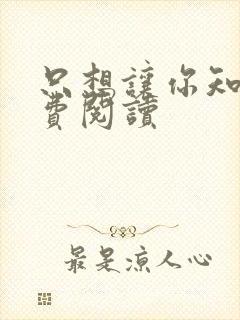 只想讓你知
費閱讀
最是涼人心